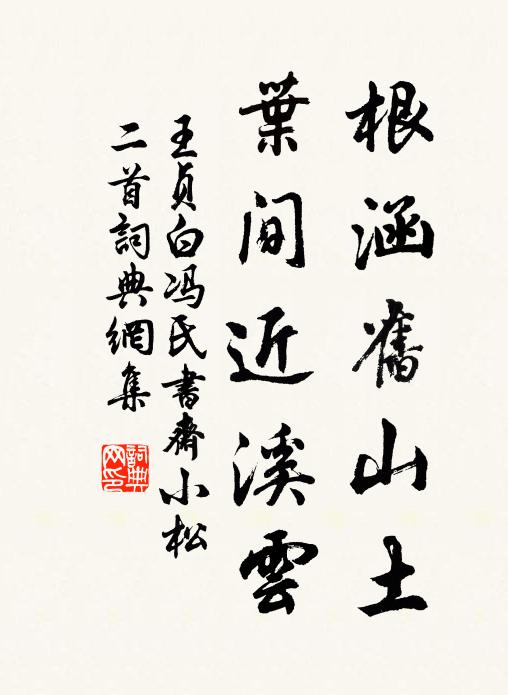 根涵舊山土
葉間近溪雲
王貞白冯氏書齋小松
二首詞典網集
詞典
网印